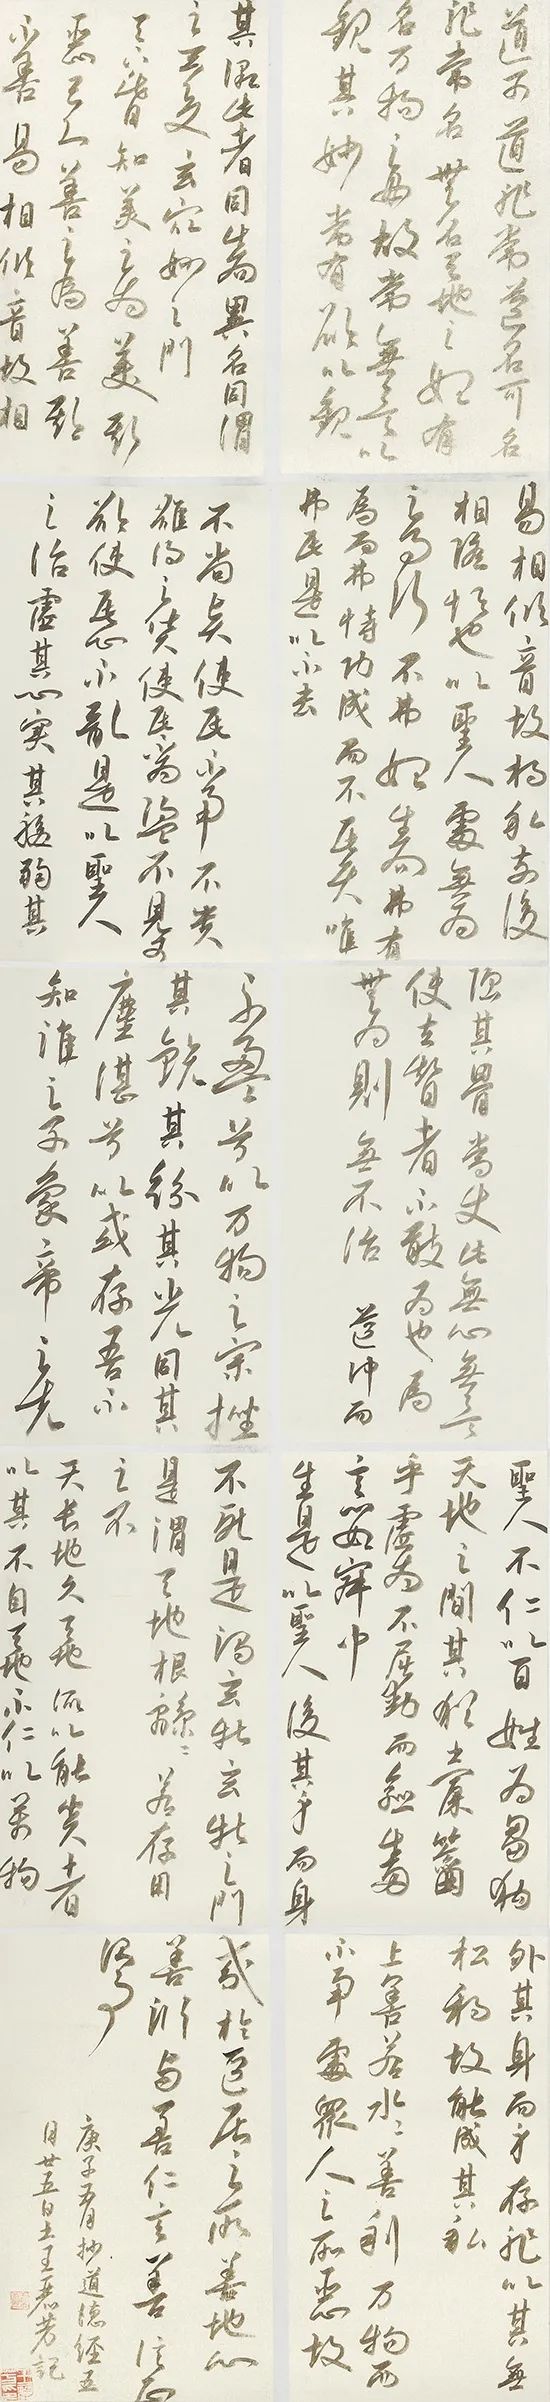 道可道非常道名可名
非常名無名天地之始有
名万物之母故常無欲以
觀其妙常有欲以觀
其徼此者同出而異名同謂
之玄又玄眾妙之門
天下皆知美之為美斯
惡已皆善之為善斯
不善易相傾音故相
易相傾音故相和前後
相隨恒也以聖人處無為
之事行不弗始生而弗有
為而弗恃功成而不居夫唯
弗居是以不去
不尚賢使民不爭不貴
難得之貨使民不為盜不見可
欲使民心不亂是以聖人
之治虛其心實其腹弱其
強其骨常使民無知無欲
使夫智者不敢為也為
無為則無不治 道沖而
不盈兮以万物之宗挫
其銳其紛其光同其
塵湛兮以或存吾不
知誰之子象帝之先
聖人不仁以百姓為芻狗
天地之間其猶橐籥
乎虛而不屈動而愈出多
言如守中
生是以聖人後其身而身
不死是謂玄牝玄牝之門
是謂天地根綿綿若存用
之不
天長地久天地所以能長者
以其不自天地不仁以萬物
外其身而身存非以其無
私和故能成其私
上善若水水善利万物而
不爭處眾人之所惡故
幾於道居之所善地心
善淵與善仁言善信
庚子五月抄道德經五
月廿五日王記